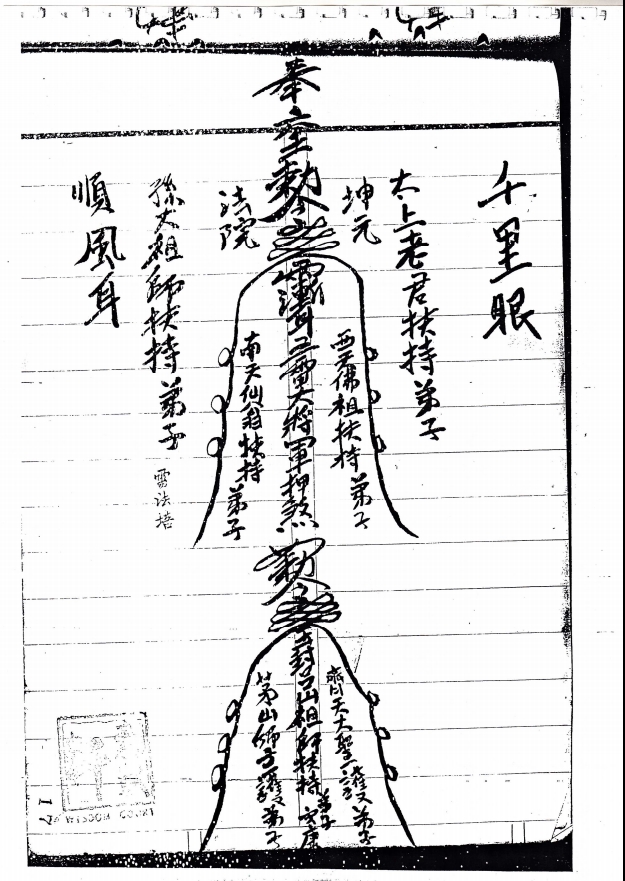 千里眼
太上老君扶持弟子
坤元
西天佛祖扶持弟子
奉
勅令
大將軍押煞
南天仙翁扶持弟子
法院
孫大祖師扶持弟子
雷法培
順風耳
勅令
天大聖護弟子
山祖師扶持弟子
茅山師弟子
17
WISDOM COURT